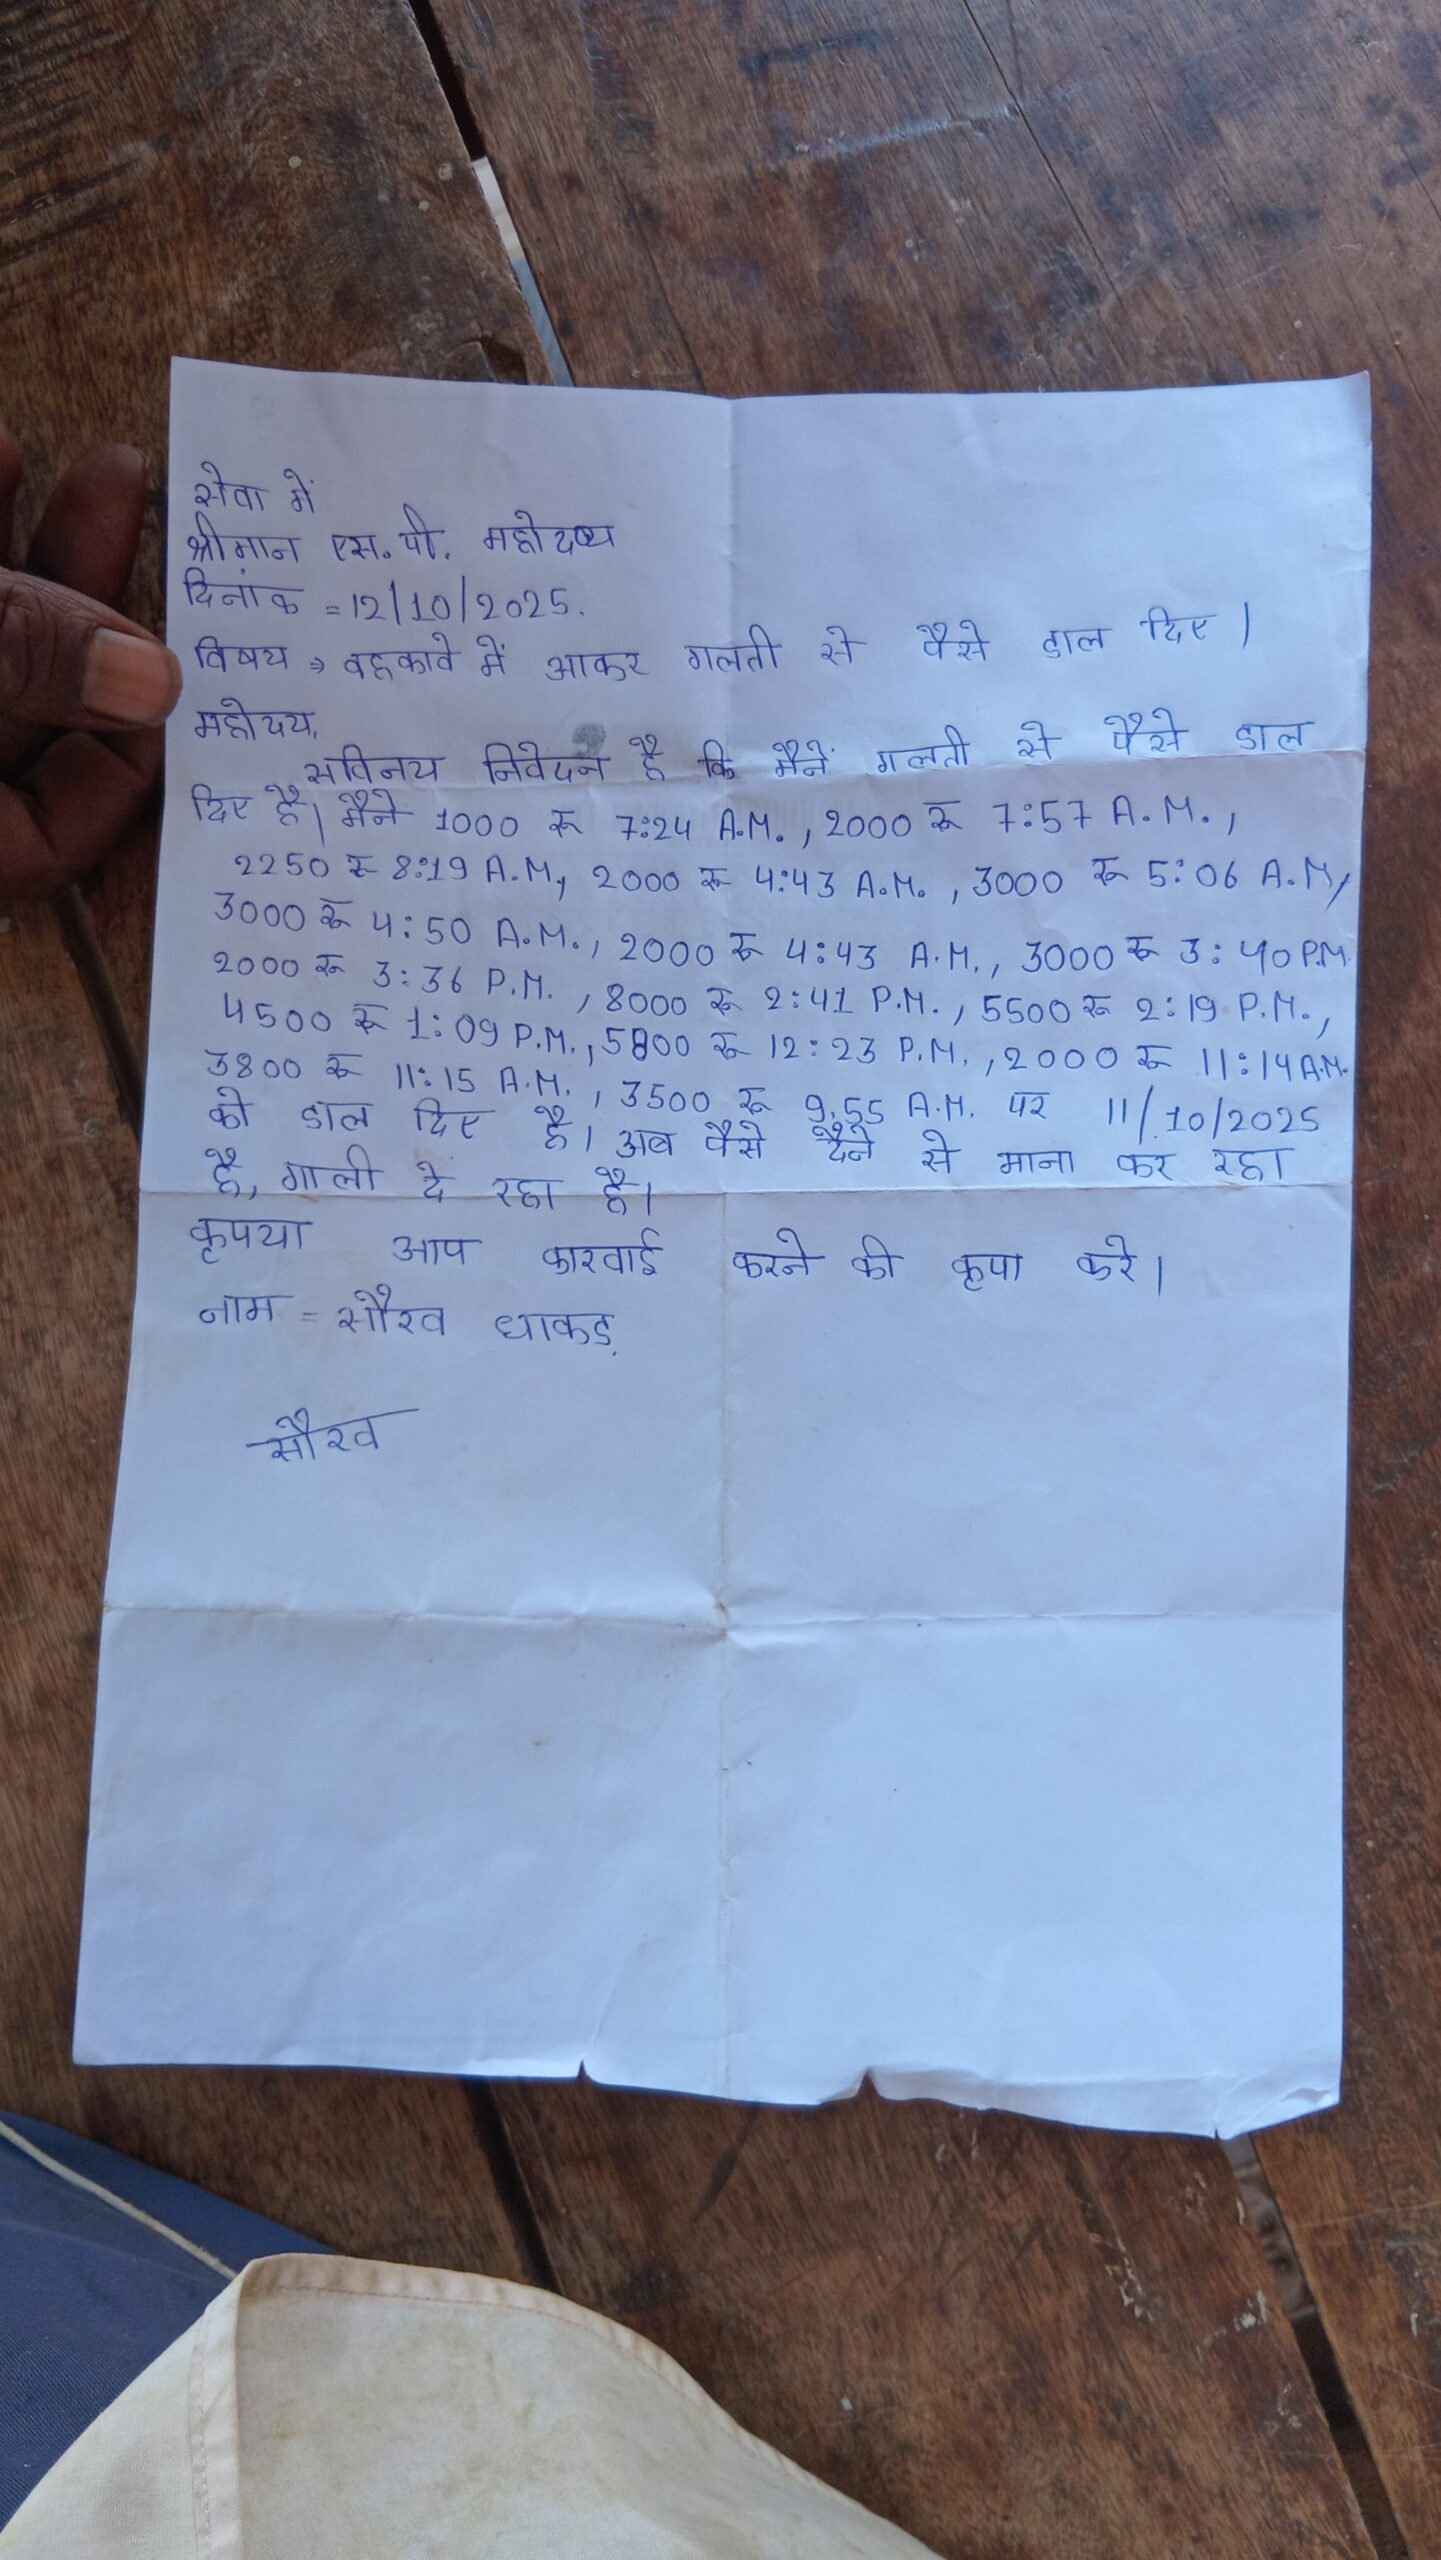 सेवा में
श्रीमान एस. पी. महोदय
दिनांक = 12/10/2025.
विषय ⇒ वहकावे में आकर गलती से पैसे डाल दिए।
महोदय,
सविनय निवेदन है कि मैनें गलती से पैसे डाल
दिए है। मैनें 1000 रू 7:24 A.M., 2000 रू 7:57 A.M.,
2250 रू 8:19 A.M, 2000 रू 4:43 A.M., 3000 रू 5:06 A.M,
3000 रू 4:50 A.M., 2000 रू 4:43 A.M., 3000 रू 3:40 P.M.
2000 रू 3:36 P.M., 8000 रू 2:41 P.M., 5500 रू 2:19 P.M.,
4500 रू 1:09 P.M., 5800 रू 12:23 P.M., 2000 रू 11:14 A.M.
3800 रू 11:15 A.M., 3500 रू 9.55 A.M. पर 11/10/2025
को डाल दिए है। अब पैसे दैने से माना कर रहा
है, गाली दे रहा है।
कृपया आप कारवाई करने की कृपा करे।
नाम = सौरव धाकड़
सौरव